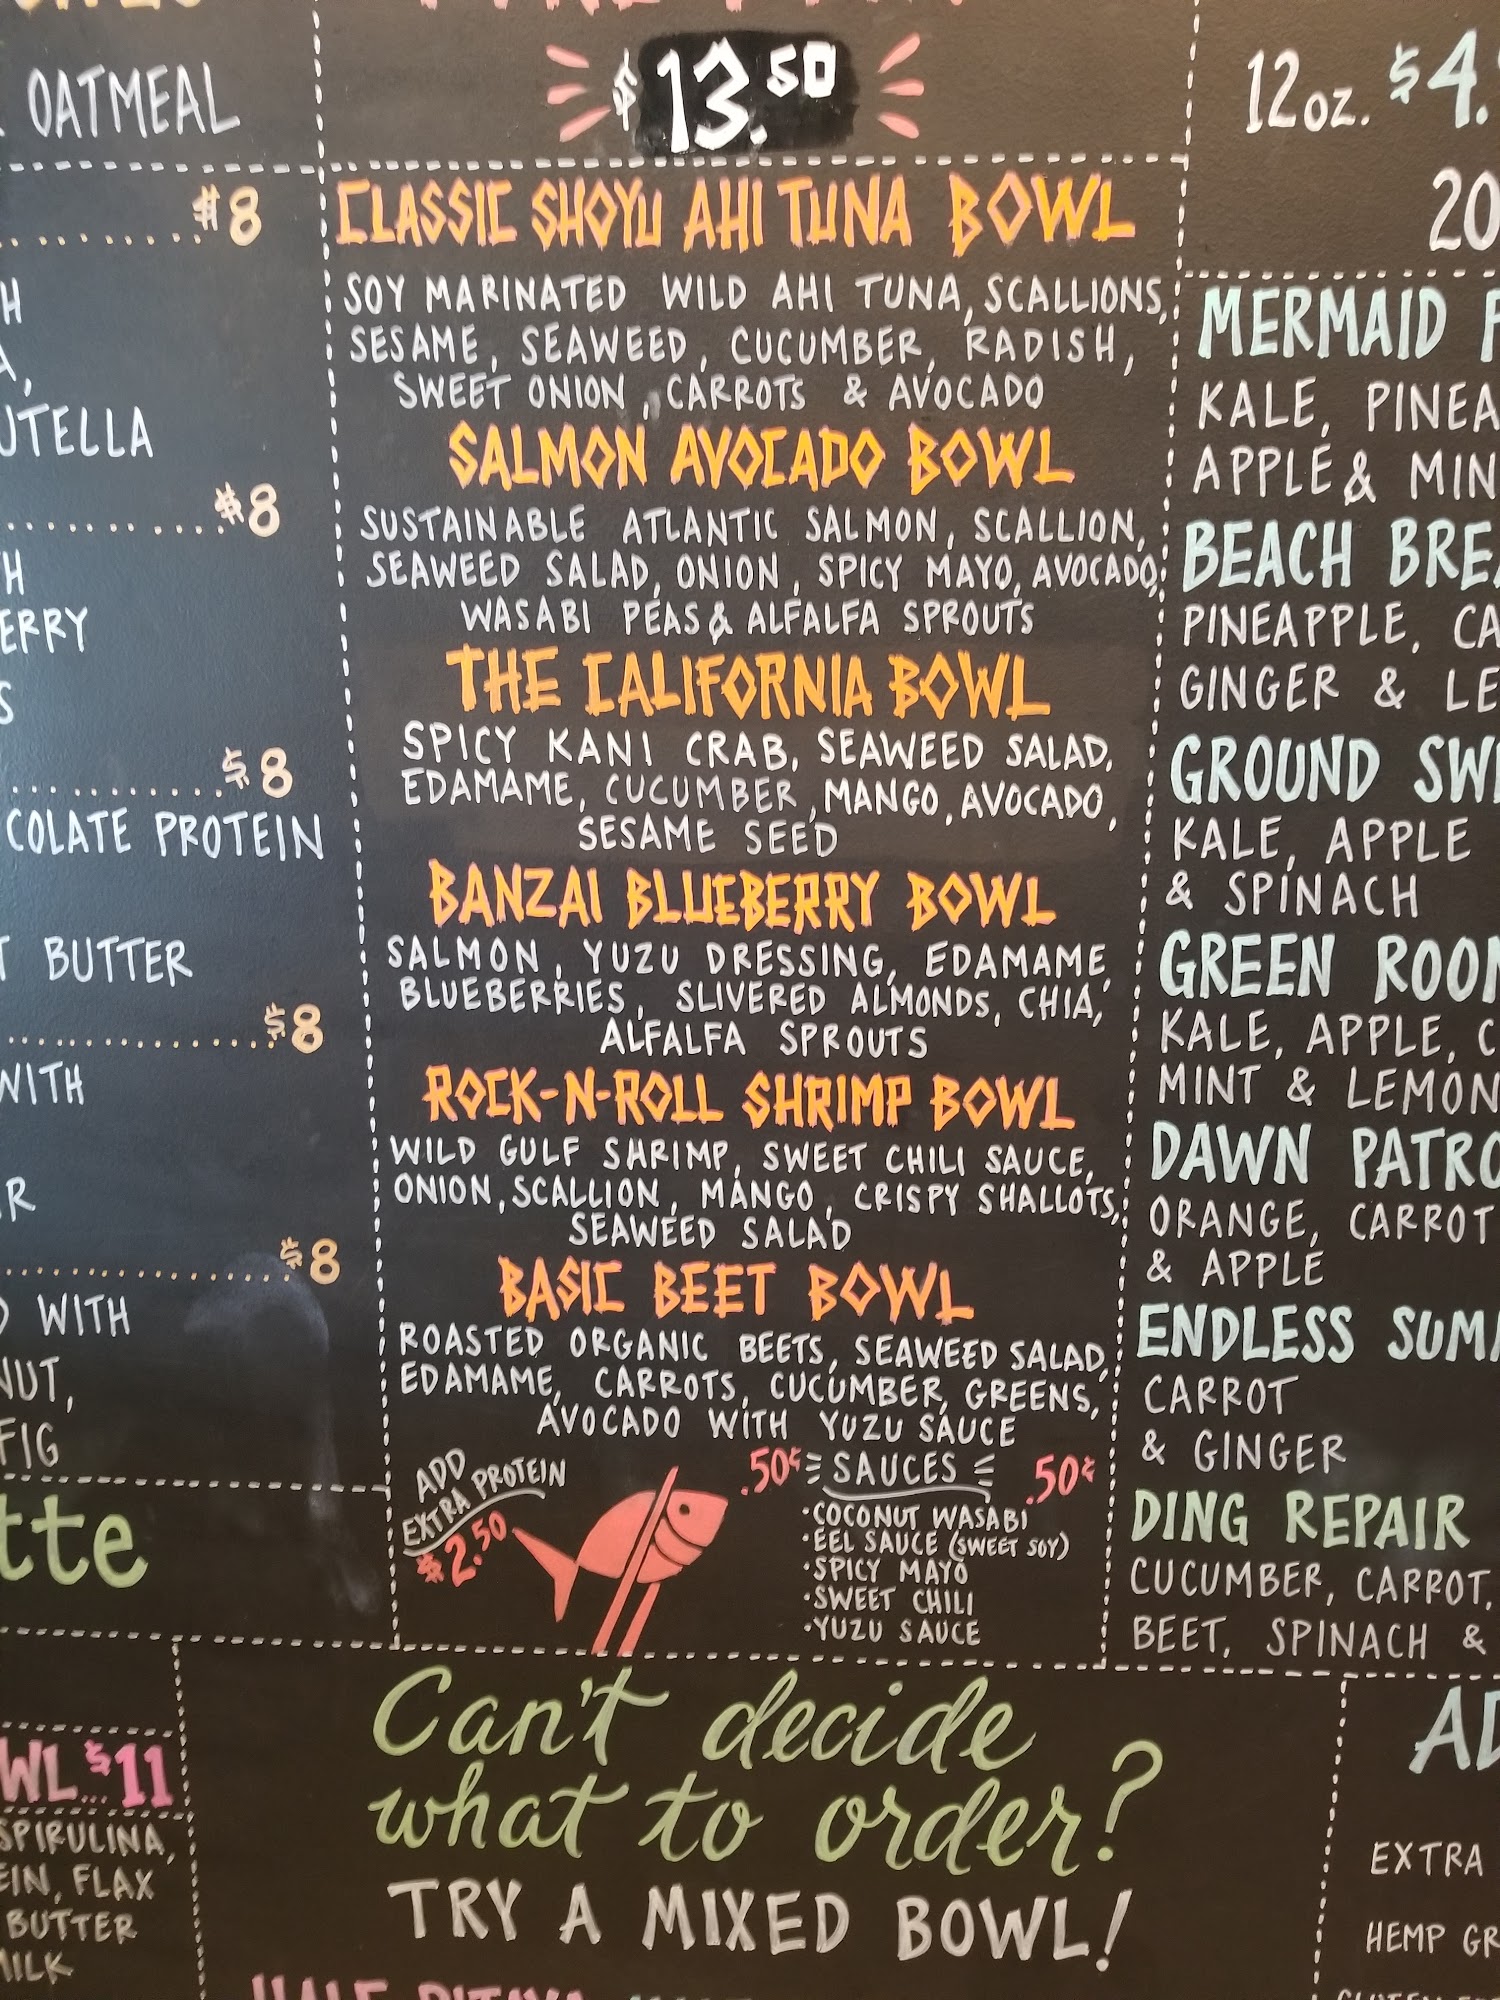 OATMEAL
$8
H
UTELLA
$8
H
ERRY
S
$8
COLATE PROTEIN
T BUTTER
$8
WITH
R
$8
WITH
NUT,
FIG
tte
WL...$11
SPIRULINA,
EIN, FLAX
BUTTER
MILK
$13.50
CLASSIC SHOYU AHI TUNA BOWL
SOY MARINATED WILD AHI TUNA, SCALLIONS,
SESAME, SEAWEED, CUCUMBER, RADISH,
SWEET ONION, CARROTS & AVOCADO
SALMON AVOCADO BOWL
SUSTAINABLE ATLANTIC SALMON, SCALLION,
SEAWEED SALAD, ONION, SPICY MAYO, AVOCADO,
WASABI PEAS & ALFALFA SPROUTS
THE CALIFORNIA BOWL
SPICY KANI CRAB, SEAWEED SALAD,
EDAMAME, CUCUMBER, MANGO, AVOCADO,
SESAME SEED
BANZAI BLUEBERRY BOWL
SALMON, YUZU DRESSING, EDAMAME,
BLUEBERRIES, SLIVERED ALMONDS, CHIA,
ALFALFA SPROUTS
ROCK-N-ROLL SHRIMP BOWL
WILD GULF SHRIMP, SWEET CHILI SAUCE,
ONION, SCALLION, MANGO, CRISPY SHALLOTS,
SEAWEED SALAD
BASIC BEET BOWL
ROASTED ORGANIC BEETS, SEAWEED SALAD,
EDAMAME, CARROTS, CUCUMBER, GREENS,
AVOCADO WITH YUZU SAUCE
ADD
EXTRA PROTEIN
$2.50
.50¢ SAUCES .50¢
·COCONUT WASABI
·EEL SAUCE (SWEET SOY)
·SPICY MAYO
·SWEET CHILI
·YUZU SAUCE
Can't decide
what to order?
TRY A MIXED BOWL!
12oz. $4.
20
MERMAID F
KALE, PINEA
APPLE & MIN
BEACH BREA
PINEAPPLE, CA
GINGER & LE
GROUND SWE
KALE, APPLE
& SPINACH
GREEN ROOM
KALE, APPLE, C
MINT & LEMON
DAWN PATRO
ORANGE, CARROT
& APPLE
ENDLESS SUMM
CARROT
& GINGER
DING REPAIR
CUCUMBER, CARROT,
BEET, SPINACH &
AD
EXTRA
HEMP GR